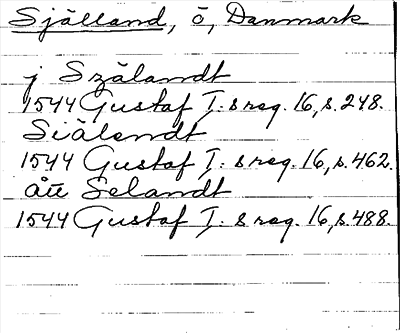 Själland, ö, Danmark
j Szälandt
1544 Gustaf I:s reg. 16, s. 248.
Siälendt
1544 Gustaf I:s reg. 16, s. 462.
ått Selandt
1544 Gustaf I:s reg. 16, s. 488.